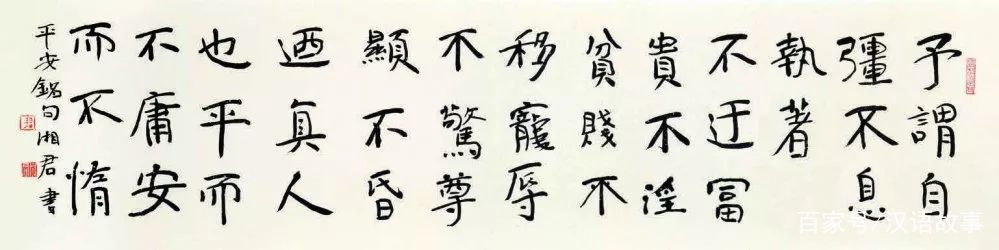 予謂自
彊不息
執著
不迂富
貴不淫
貧賤不
移寵辱
不驚尊
顯不昏
迺真人
也平而
不庸安
而不惰
平安句湘君書
百家号/汉语故事